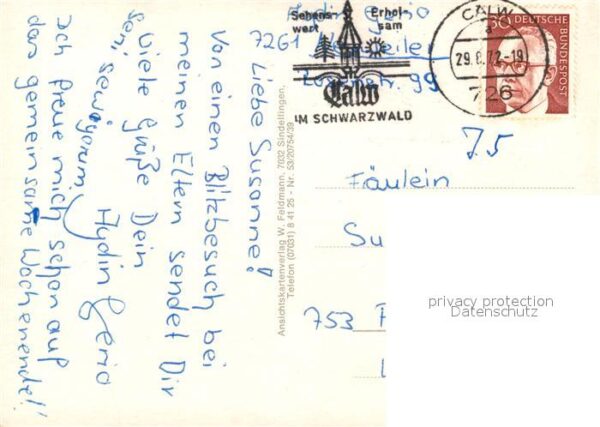 Liebe Susanne!
Von einen Blitzbesuch bei
meinen Eltern sendet Dir
viele Grüße Dein
Ich freue mich schon auf
das gemeinsame Wochenende!
Ansichtskartenverlag W. Feldmann, 7032 Sindelfingen,
Telefon (07031) 8 41 25 - Nr. 53/20754/39
7261
99
Sehens-
wert
Erhol-
sam
Calw
IM SCHWARZWALD
CALW
29.8.72-19
726
30 DEUTSCHE
BUNDESPOST
Fäulein
Su
753
privacy protection
Datenschutz